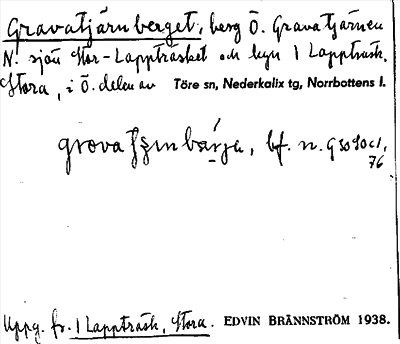 Gravatjärnberget, berg Ö. Gravatjärnen
N. sjön Stor-Lappträsket och byn 1 Lappträsk,
Stora, i Ö. delen av Töre sn, Nederkalix tg, Norrbottens l.
bf. n.
76
Uppg. fr. 1 Lappträsk, Stora. EDVIN BRÄNNSTRÖM 1938.